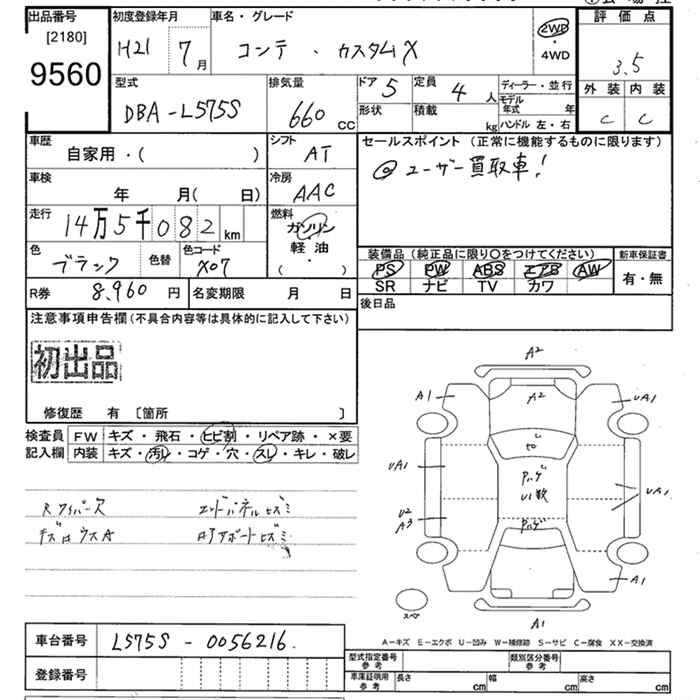 出品番号
[2180]
9560
初度登録年月
H21 7月
車名・グレード
コンテ ・ カスタムX
2WD
・
4WD
評価点
3.5
外装 内装
C C
型式
DBA-L575S
排気量
660 CC
ドア 5
定員 4 人
形状
積載 kg
ディーラー・並行
モデル年式 年
ハンドル 左・右
車歴
自家用・( )
シフト
AT
セールスポイント (正常に機能するものに限ります)
◎ ユーザー買取車!
車検
年 月( 日)
冷房
AAC
走行
14万5千082 km
燃料
ガソリン
軽・油
( ・ )
色
ブラック
色替
色コード
X07
装備品 (純正品に限り○をつけてください)
PS PW ABS エアB AW
SR ナビ TV カワ
新車保証書
有・無
R券 8,960 円
名変期限 月 日
後日品
注意事項申告欄 (不具合内容等は具体的に記入して下さい)
初出品
修復歴 有 [箇所 ]
検査員
記入欄
FW キズ・飛石・ヒビ割・リペア跡・×要
内装 キズ・汚レ・コゲ・穴・スレ・キレ・破レ
Rワイパーズ エンドパネルヒズミ
キズロウスA ロアアボートヒズミ
A2
A1 A2 UA1
ヒビ
UA1 Pハゲ UA1
U1数
U2
A3 Pハゲ
A1
スペア
A1
A-キズ E-エクボ U-凹み W-補修跡 S-サビ C-腐食 XX-交換済
車台番号 L575S - 0056216.
登録番号
型式指定番号
参考
類別区分番号
参考
車庫証明用
参考
長さ cm 幅 cm 高さ cm